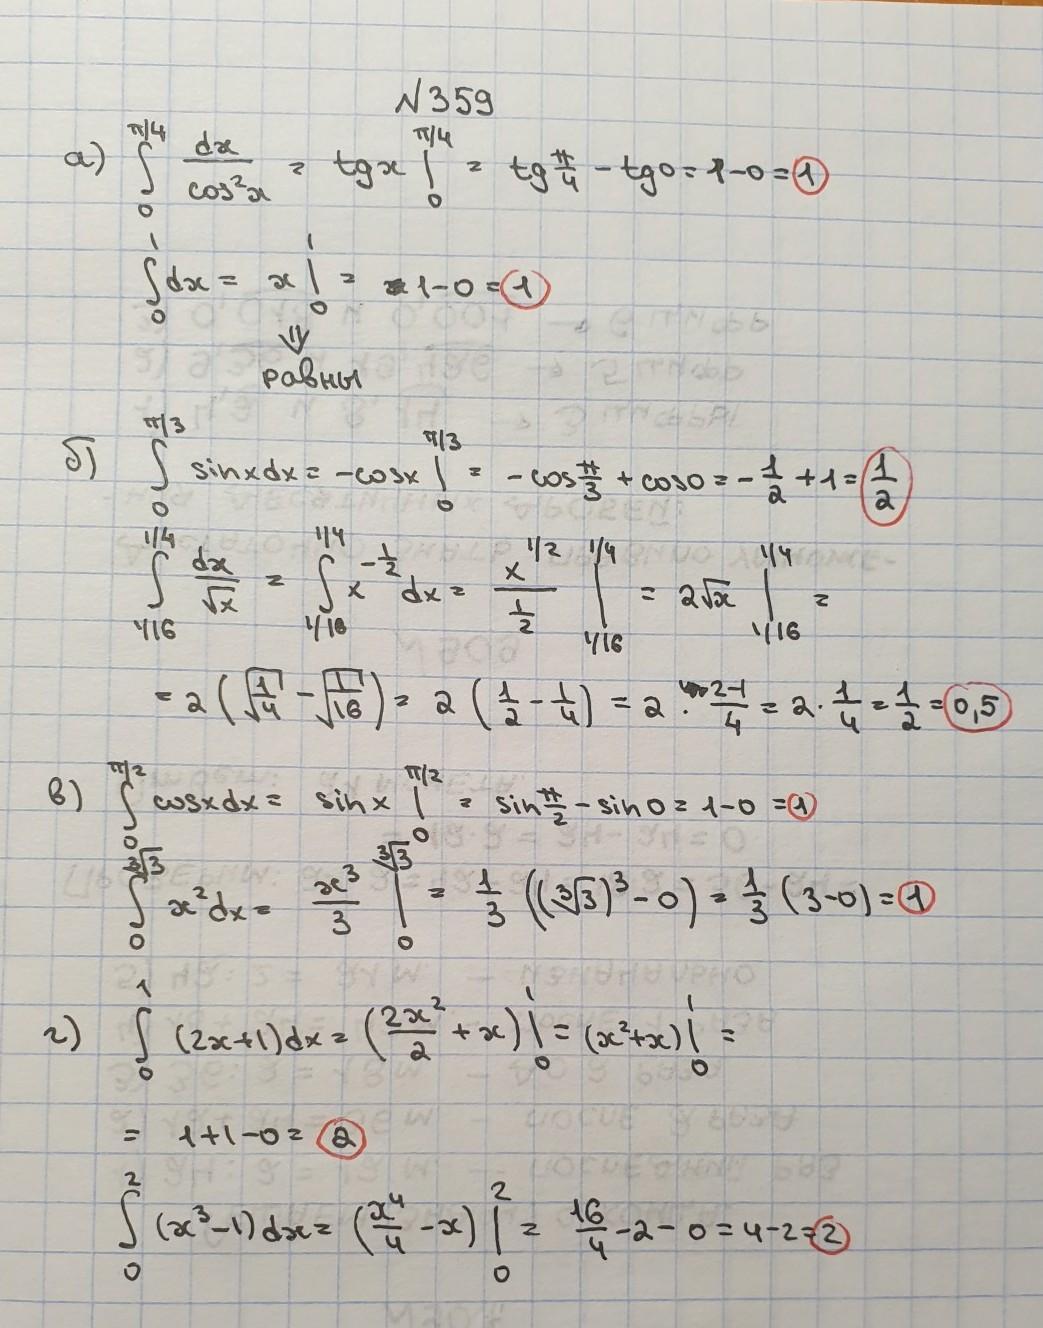 №359
а) ∫₀^{π/4} dx/cos²x = tgx |₀^{π/4} = tg π/4 - tg0 = 1-0 = 1
∫₀¹ dx = x |₀¹ = 1-0 = 1
⇓
равны
б) ∫₀^{π/3} sinxdx = -cosx |₀^{π/3} = -cos π/3 + cos0 = -1/2 + 1 = 1/2
∫_{1/16}^{1/4} dx/√x = ∫_{1/16}^{1/4} x^{-1/2} dx = x^{1/2}/(1/2) |_{1/16}^{1/4} = 2√x |_{1/16}^{1/4} =
= 2(√(1/4) - √(1/16)) = 2(1/2 - 1/4) = 2 · (2-1)/4 = 2 · 1/4 = 1/2 = 0,5
в) ∫₀^{π/2} cosxdx = sin x |₀^{π/2} = sin π/2 - sin0 = 1-0 = 1
∫₀^{∛3} x²dx = x³/3 |₀^{∛3} = 1/3 ((∛3)³ - 0) = 1/3 (3-0) = 1
г) ∫₀¹ (2x+1)dx = (2x²/2 + x) |₀¹ = (x²+x) |₀¹ =
= 1+1-0 = 2
∫₀² (x³-1)dx = (x⁴/4 - x) |₀² = 16/4 - 2 - 0 = 4-2 = 2